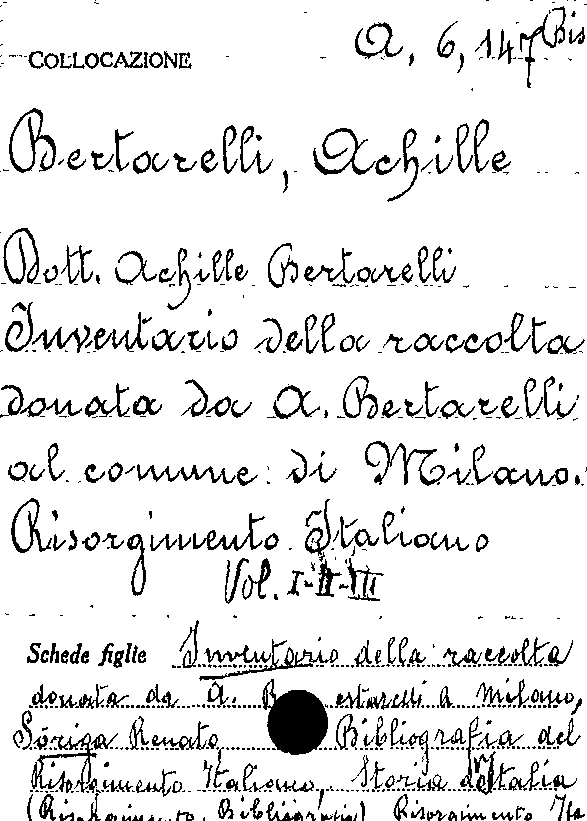 COLLOCAZIONE A, 6, 147 Bis
Bertarelli, Achille
Dott. Achille Bertarelli
Inventario della raccolta
donata da A. Bertarelli
al comune di Milano.
Risorgimento Italiano
Vol. I-II-III
Schede figlie Inventario della raccolta
donata da A. B estarelli a Milano,
Sòriga Renato, Bibliografia del
Risorgimento Italiano, Storia d'Italia
(Risorgimento, Bibliografia) Risorgimento Ita